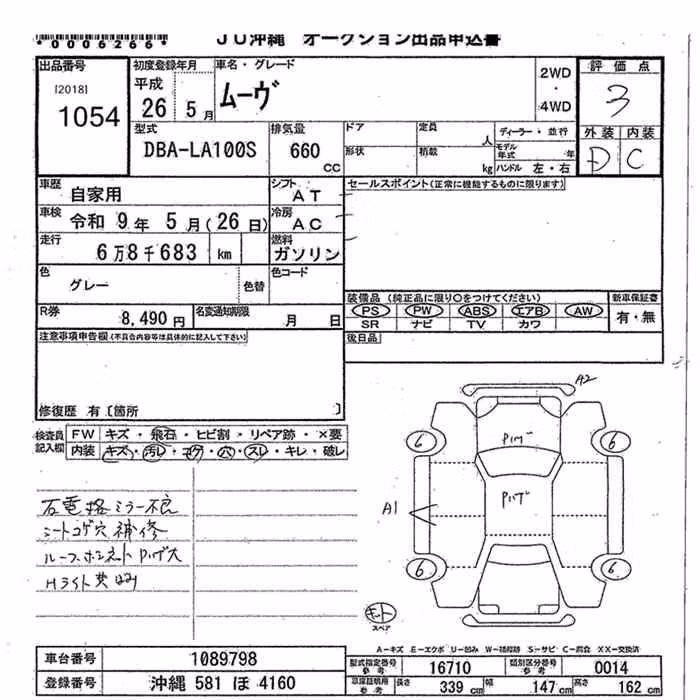 *0006266*
JU沖縄 オークション出品申込書
出品番号 初度登録年月 車名・グレード 評価点
[2018] 1054
平成 26 5月
ムーヴ
2WD・4WD
3
外装 内装
D C
型式 排気量 ドア 定員 人 ディーラー・並行
DBA-LA100S 660 CC
形状 積載 kg モデル年式 年 ハンドル 左・右
車歴 自家用 シフト AT セールスポイント(正常に機能するものに限ります)
車検 令和 9年 5月(26日) 冷房 AC
走行 6万8千683 km 燃料 ガソリン
色 グレー 色替 色コード
装備品 (純正品に限り○をつけてください) 新車保証書
PS PW ABS エアB AW 有・無
SR ナビ TV カワ
R券 8,490円 名変通知期限 月 日
後日品
注意事項申告欄(不具合内容等は具体的に記入して下さい)
修復歴 有〔箇所 〕
検査員記入欄 FW キズ・飛石・ヒビ割・リペア跡・×要
内装 キズ・汚レ・コゲ・穴・スレ・キレ・破レ
A2
Pハゲ
6 6
Pハゲ
A1
6 6
右電格ミラー不良
シートコゲ穴補修
ルーフボンネットPハゲ大
Hライト黄ばみ
キット
スペア
A-キズ E-エクボ U-凹み W-補修跡 S-サビ C-腐食 XX-交換済
車台番号 1089798
型式指定番号参考 16710 類別区分番号参考 0014
登録番号 沖縄 581 ほ 4160
車庫証明用参考 長さ 339cm 幅 147cm 高さ 162cm